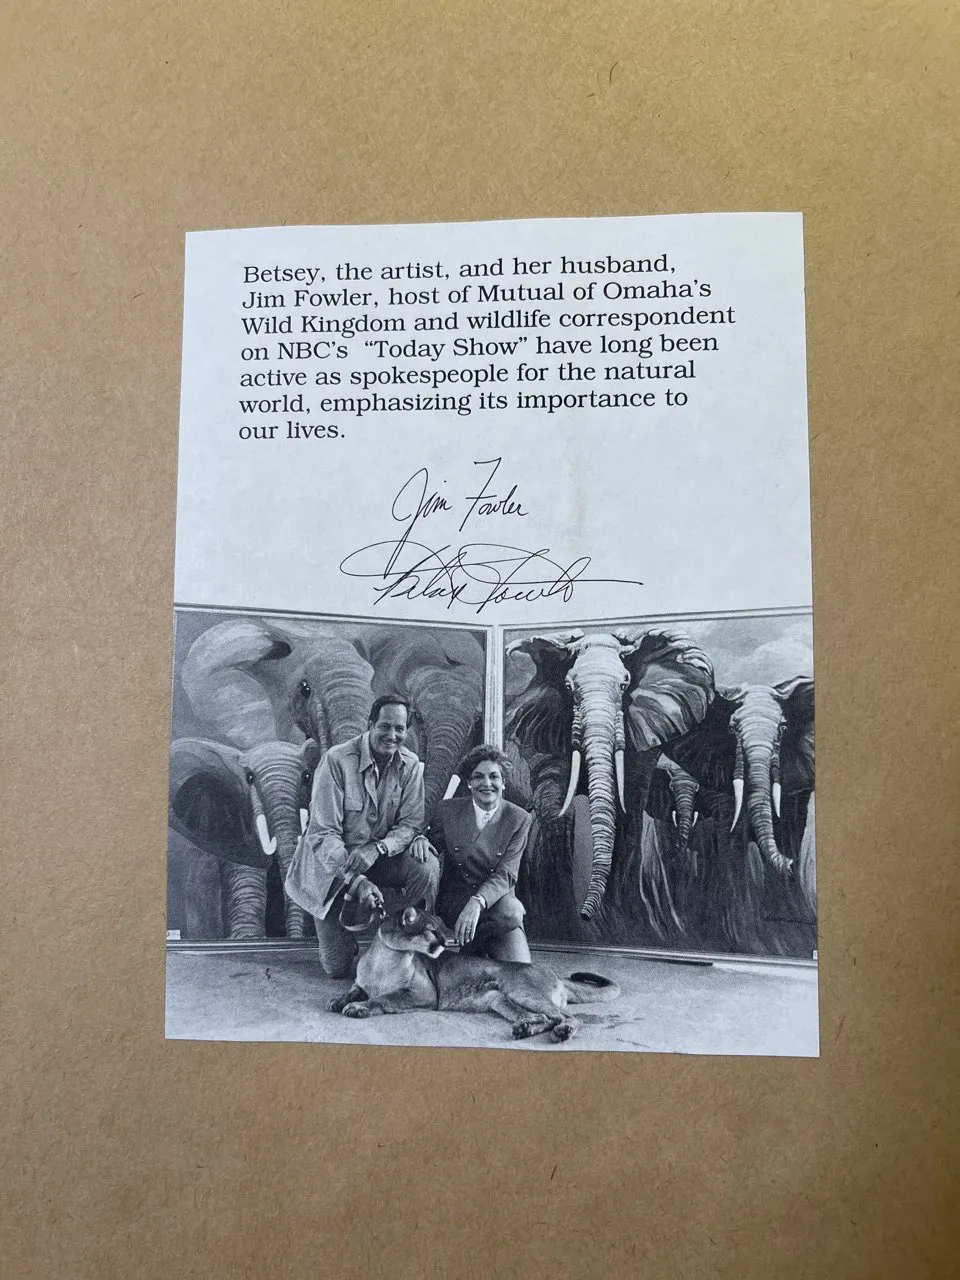 Betsey, the artist, and her husband,
Jim Fowler, host of Mutual of Omaha's
Wild Kingdom and wildlife correspondent
on NBC's “Today Show” have long been
active as spokespeople for the natural
world, emphasizing its importance to
our lives.
Jim Fowler
Betsey Fowler